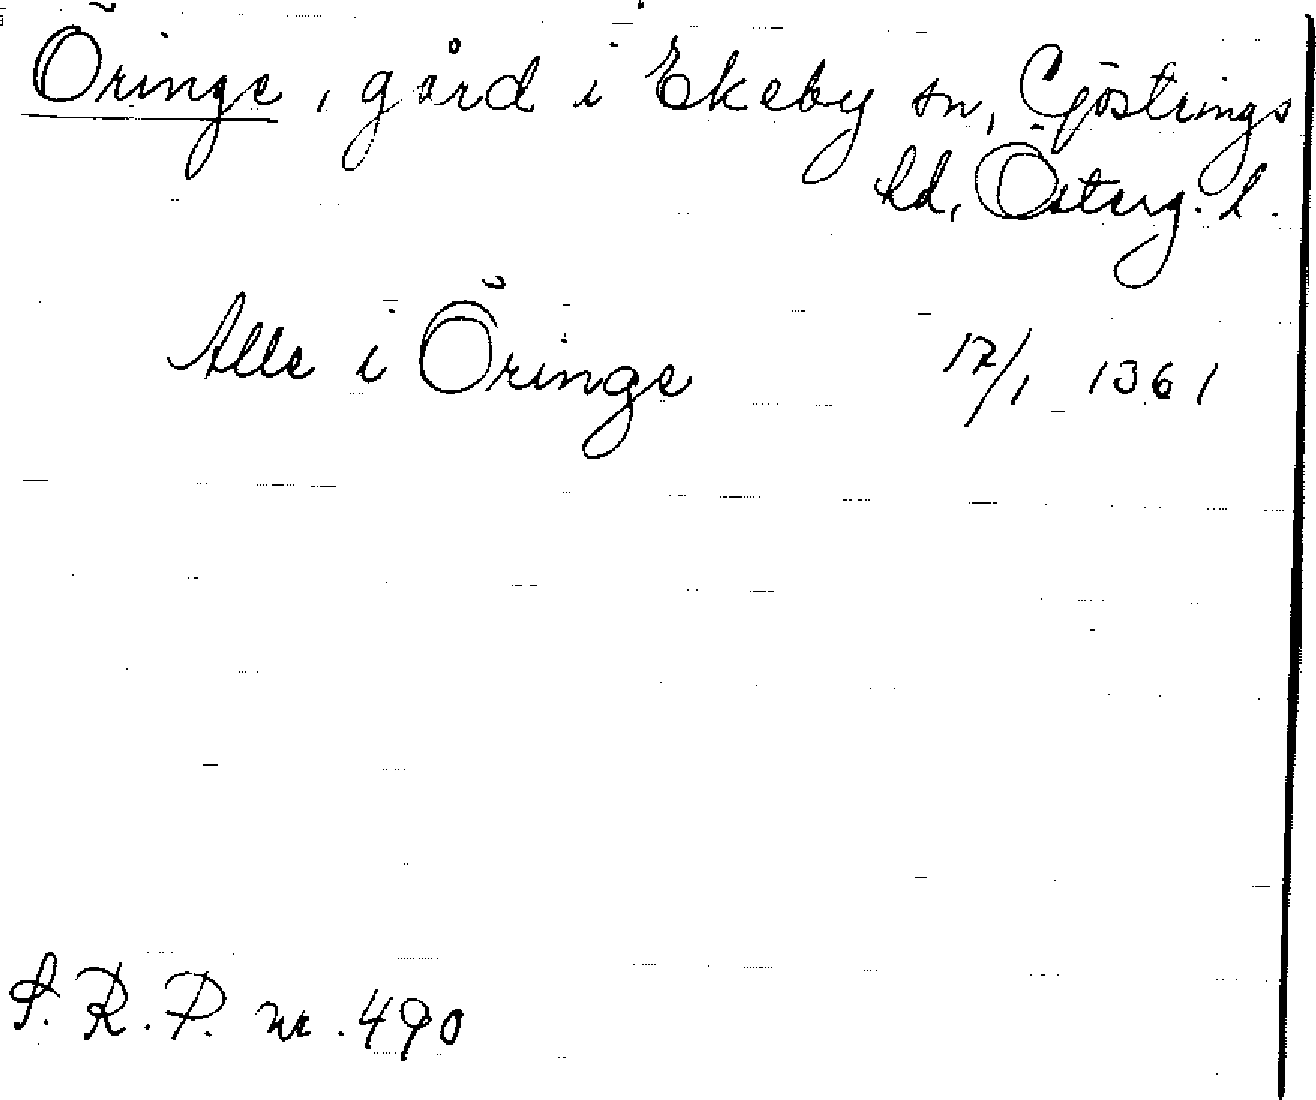 Öringe, gård i Ekeby sn, Göstrings
hd, Österg. l.
Alle i Öringe 17/1 1361
S. R. P. nr. 490